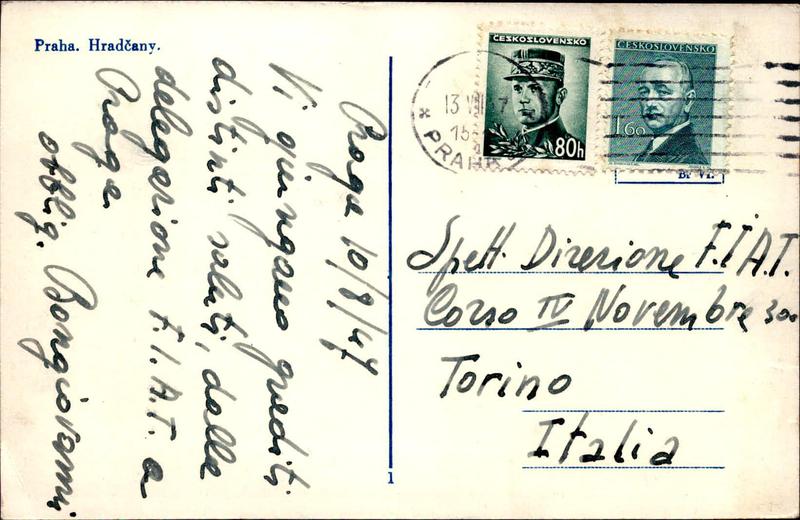 Praha. Hradčany.
Praga 10/8/47
Vi giungano graditi
distinti saluti, dalla
delegazione F.I.A.T. a
Praga.
obblig. Bongiovanni
1
ČESKOSLOVENSKO
80h
ČESKOSLOVENSKO
1.60
13 VIII 47
PRAHA
Spett. Direzione F.I.A.T.
Corso IV Novembre 300
Torino
Italia